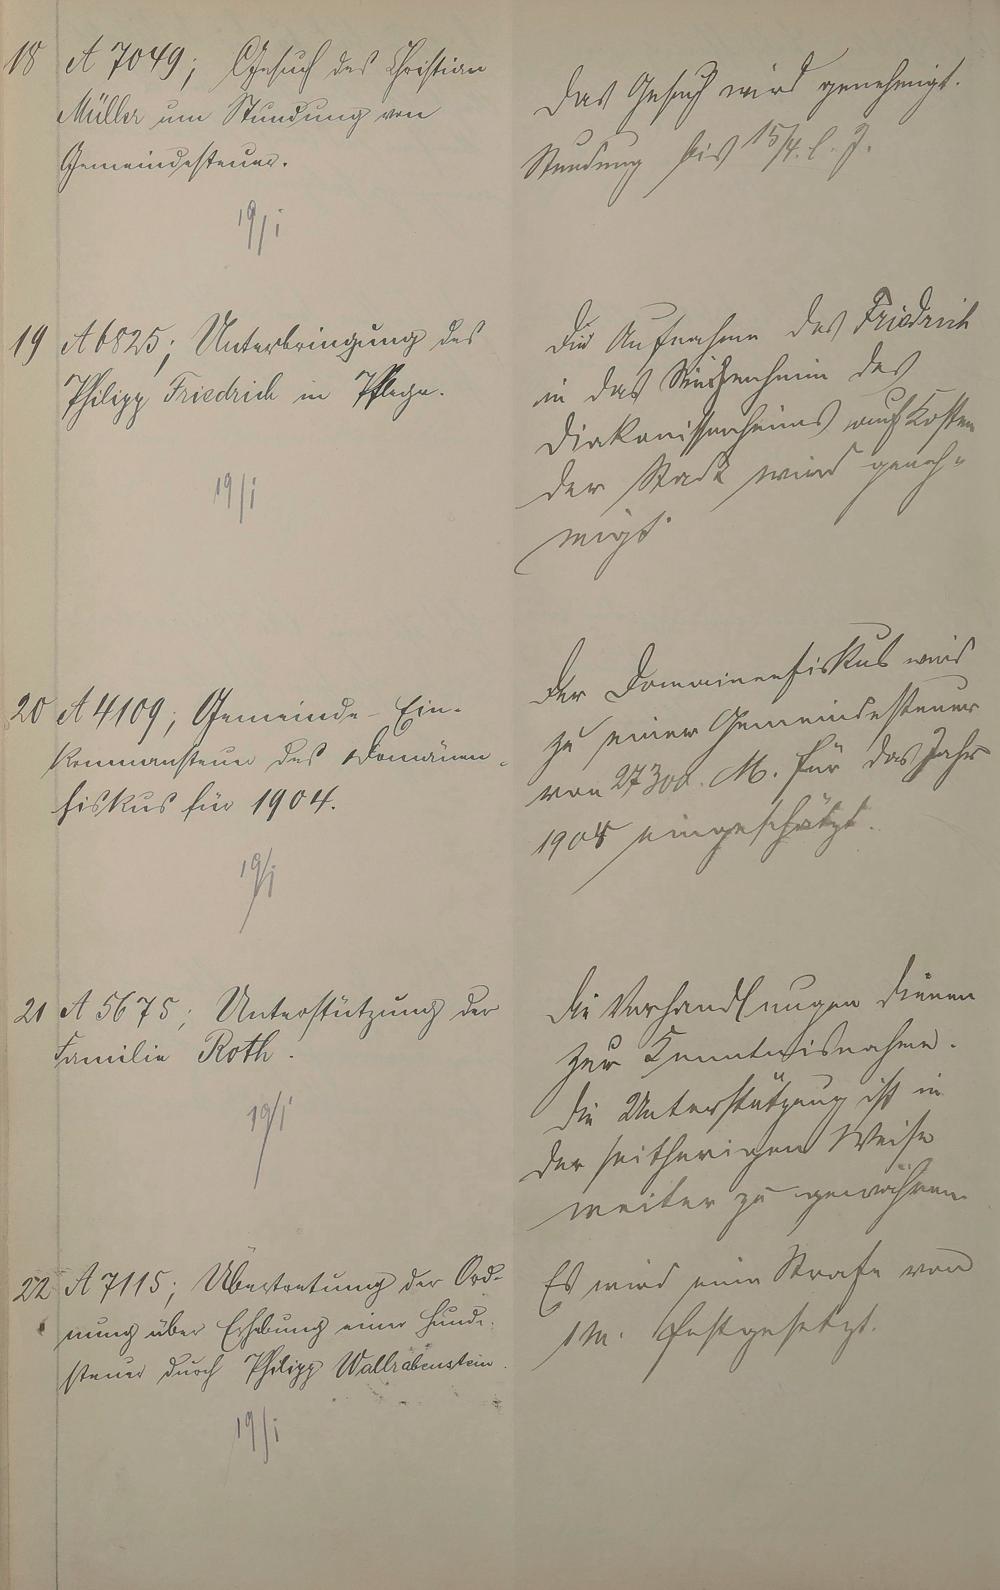 18 A 7049; Gesuch des Christian
Müller um Stundung von
Gemeindesteuer.
19/I
Das Gesuch wird genehmigt.
Stundung bis 15/4. l. J.
19 A 6825; Unterbringung des
Philipp Friedrich in Pflege.
19/I
Die Aufnahme des Friedrich
in das Siechenheim des
Diakonissenheims auf Kosten
der Stadt wird geneh-
migt.
20 A 4109; Gemeinde-Ein-
kommensteuer des Domänen-
fiskus für 1904.
19/I
Der Domainenfiskus wird
zu einer Gemeindesteuer
von 27300. M. für das Jahr
1904 eingeschätzt.
21 A 5675; Unterstützung der
Familie Roth.
19/I
Die Verhandlungen dienen
zur Kenntnisnahme.
Die Unterstützung ist in
der seitherigen Weise
weiter zu gewähren.
22 A 7115; Übertretung der Ord-
nung über Erhebung einer Hunde-
steuer durch Philipp Wallrabenstein.
19/I
Es wird eine Strafe von
1 M. festgesetzt.